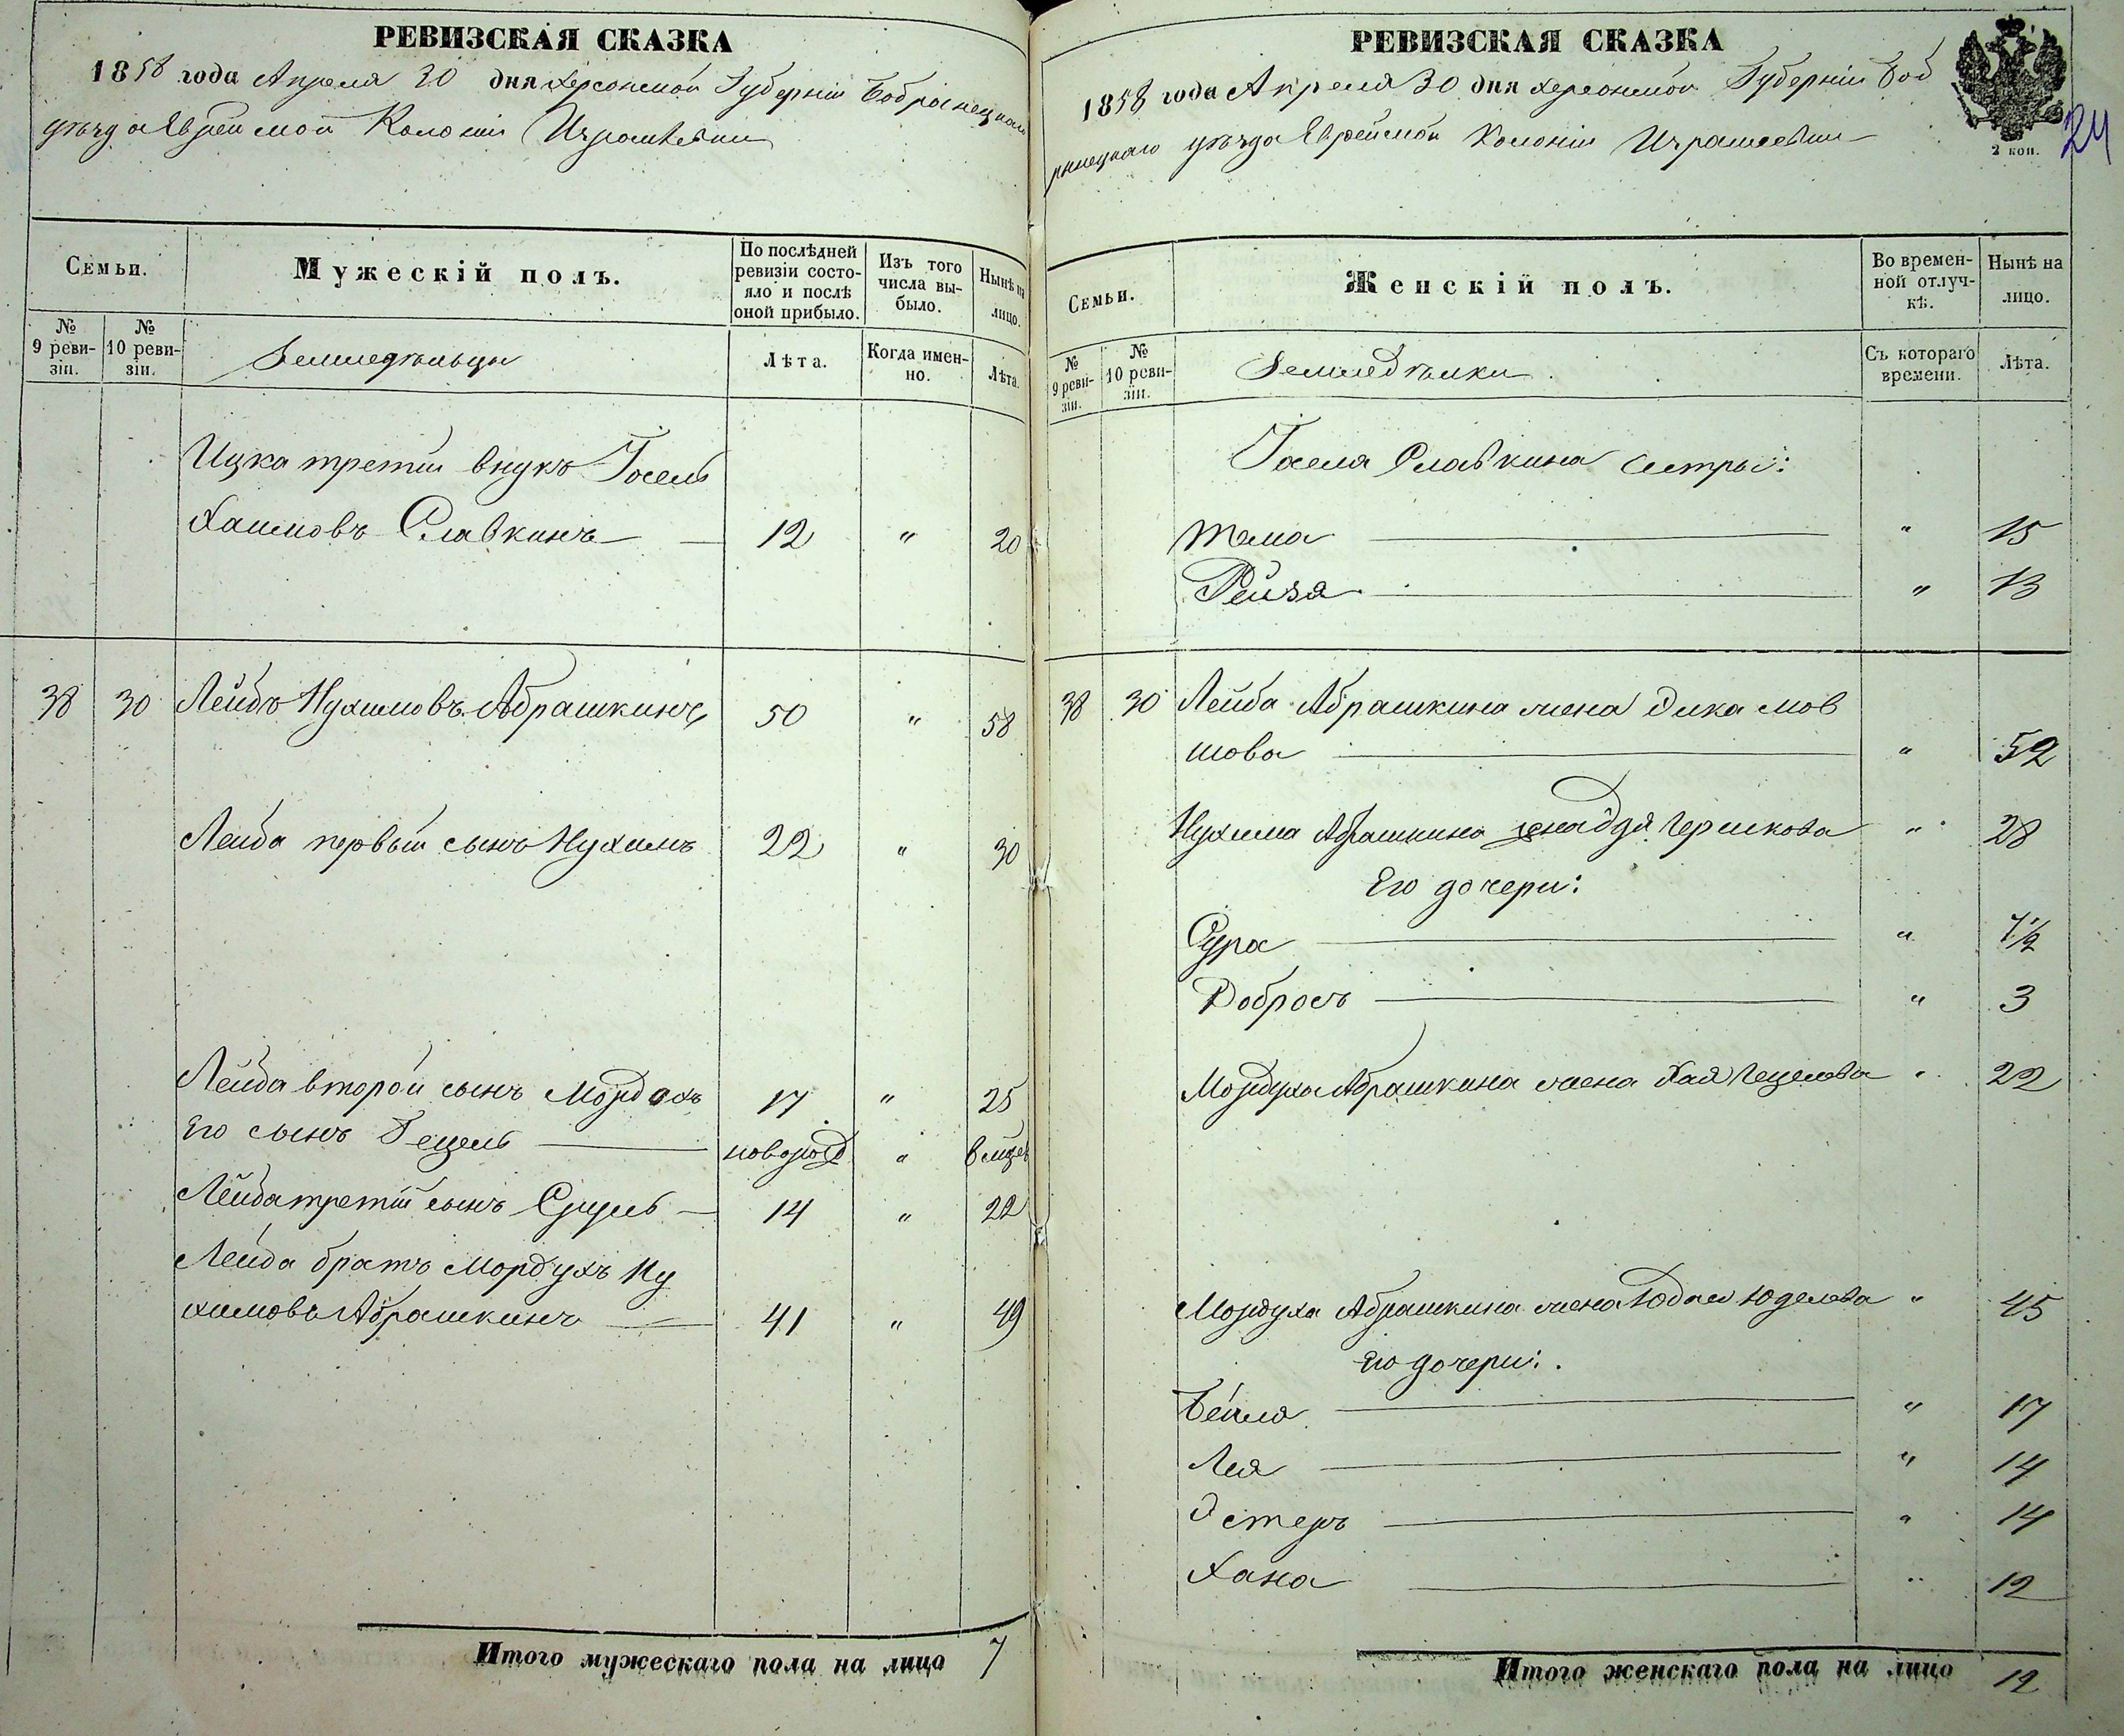 РЕВИЗСКАЯ СКАЗКА
1858 года Апреля 30 дня Херсонской Губернии Бобринецкаго
уѣзда Еврейской Колонии Израилевки
Семьи.
Мужескій полъ.
По послѣдней ревизіи состояло и послѣ оной прибыло.
Изъ того числа выбыло.
Нынѣ на лицо.
№ 9 ревизіи.
№ 10 ревизіи.
Земледѣльцы
Лѣта.
Когда именно.
Лѣта.
Ицка третій внукъ Іосель
Хаимовъ Славкинъ — 12 " 20
38 30 Лейбъ Нухимовъ Абрашкинъ 50 " 58
Лейба первый сынъ Нухимъ 22 " 30
Лейба второй сынъ Мордухъ 17 " 25
Его сынъ Гецель — новорожд " 8 мцев
Лейба третій сынъ Сруль — 14 " 22
Лейба братъ Мордухъ Ну
химовъ Абрашкинъ — 41 " 49
Итого мужескаго пола на лицо 7
РЕВИЗСКАЯ СКАЗКА
1858 года Апреля 30 дня Херсонской Губерніи Боб
ринецкаго уѣзда Еврейской Колоніи Израилевки
2 коп.
24
Семьи.
Женскій полъ.
Во временной отлучкѣ.
Нынѣ на лицо.
№ 9 ревизіи.
№ 10 ревизіи.
Земледѣлки
Съ котораго времени.
Лѣта.
Іоселя Славкина сестры:
Тема — " 15
Рейзя — " 13
38 30 Лейба Абрашкина жена Дика Мов
шова — " 52
Нухима Абрашкина жена Гершкова " 28
Его дочери:
Сура — " 7½
Добрось — " 3
Мордуха Абрашкина жена Хая Гецелева " 22
Мордуха Абрашкина жена Юделева " 45
Его дочери:
Бейля — " 17
Лея — " 14
Эстеръ — " 14
Хана — " 12
Итого женскаго пола на лицо 12